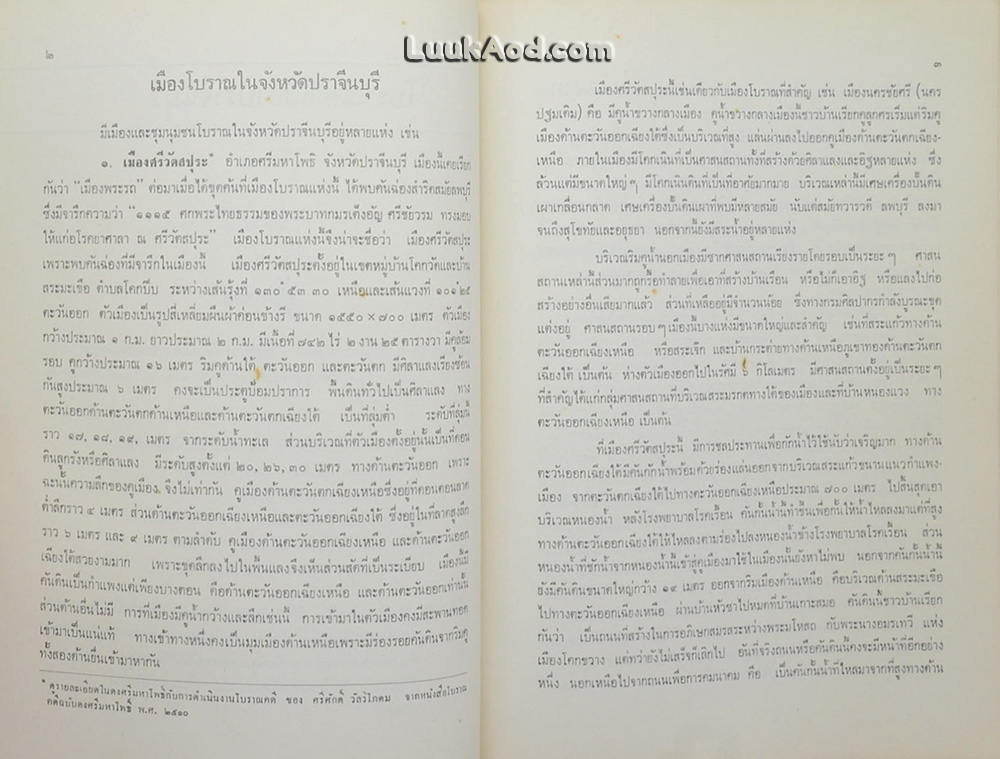 LuukAod.com
๒
เมืองโบราณในจังหวัดปราจีนบุรี
มีเมืองและชุมนุมชนโบราณในจังหวัดปราจีนบุรีอยู่หลายแห่ง เช่น
๑. เมืองศรีวัตสปุระ* อำเภอศรีมหาโพธิ จังหวัดปราจีนบุรี เมืองนี้เคยเรียก
กันว่า "เมืองพระรถ" ต่อมาเมื่อได้ขุดค้นที่เมืองโบราณแห่งนี้ ได้พบคันฉ่องสำริดสมัยลพบุรี
ซึ่งมีจารึกความว่า "๑๑๑๕ ศกพระไทยธรรมของพระบาทกมรเตงอัญ ศรีชัยวรม ทรงมอบ
ให้แก่อโรคยาศาลา ณ ศรีวัตสปุระ" เมืองโบราณแห่งนี้จึงน่าจะชื่อว่า เมืองศรีวัตสปุระ
เพราะพบคันฉ่องที่มีจารึกในเมืองนี้ เมืองศรีวัตสปุระตั้งอยู่ในเขตหมู่บ้านโคกวัดและบ้าน
สระมะเขือ ตำบลโคกปีบ ระหว่างเส้นรุ้งที่ ๑๓๐ ๕๓ ๓๐ เหนือและเส้นแวงที่ ๑๐๑ ๒๕
ตะวันออก ตัวเมืองเป็นรูปสี่เหลี่ยมผืนผ้าค่อนข้างรี ขนาด ๑๕๕๐ × ๗๐๐ เมตร ตัวเมือง
กว้างประมาณ ๑ ก.ม. ยาวประมาณ ๒ ก.ม. มีเนื้อที่ ๗๔๒ ไร่ ๒ งาน ๒๕ ตารางวา มีคูล้อม
รอบ คูกว้างประมาณ ๑๖ เมตร ริมคูด้านใต้ ตะวันออก และตะวันตก มีศิลาแลงเรียงซ้อน
กันสูงประมาณ ๖ เมตร คงจะเป็นประตูป้อมปราการ พื้นดินทั่วไปเป็นศิลาแลง ทาง
ตะวันออกด้านตะวันตกด้านเหนือและด้านตะวันตกเฉียงใต้ เป็นที่ลุ่มต่ำ ระดับที่ลุ่มนี้
ราว ๑๗, ๑๘, ๑๙, เมตร จากระดับน้ำทะเล ส่วนบริเวณที่ตัวเมืองตั้งอยู่นั้นเป็นที่ดอน
ดินลูกรังหรือศิลาแลง มีระดับสูงตั้งแต่ ๒๐, ๒๖, ๓๐ เมตร ทางด้านตะวันออก เพราะ
ฉะนั้นความลึกของคูเมือง จึงไม่เท่ากัน คูเมืองด้านตะวันตกเฉียงเหนือซึ่งอยู่ที่ดอนตอนลาด
ต่ำลึกราว ๔ เมตร ส่วนด้านตะวันออกเฉียงเหนือและตะวันออกเฉียงใต้ ซึ่งอยู่ในที่ลาดสูงลึก
ราว ๖ เมตร และ ๙ เมตร ตามลำดับ คูเมืองด้านตะวันออกเฉียงเหนือ และด้านตะวันออก
เฉียงใต้สวยงามมาก เพราะขุดลึกลงไปในพื้นแลงจึงเห็นส่วนสัดที่เป็นระเบียบ เมืองนี้มี
คันดินเป็นกำแพงแต่เพียงบางตอน คือด้านตะวันออกเฉียงเหนือ และด้านตะวันออกเท่านั้น
ส่วนด้านอื่นไม่มี การที่เมืองมีคูน้ำกว้างและลึกเช่นนี้ การเข้ามาในตัวเมืองคงมีสะพานทอด
เข้ามาเป็นแน่แท้ ทางเข้าทางหนึ่งคงเป็นมุมเมืองด้านเหนือเพราะมีร่องรอยคันดินจากริมคู
ทั้งสองด้านยื่นเข้ามาหากัน
* ดูรายละเอียดในดงศรีมหาโพธิ์กับการดำเนินงานโบราณคดี ของ ศรีศักดิ์ วัลลิโภดม จากหนังสือโบราณ
คดีฉบับดงศรีมหาโพธิ์ พ.ศ. ๒๕๑๐
๓
เมืองศรีวัตสปุระนี้เช่นเดียวกับเมืองโบราณที่สำคัญ เช่น เมืองนครชัยศรี (นคร
ปฐมเดิม) คือ มีคูน้ำขวางกลางเมือง คูน้ำขวางกลางเมืองนี้ชาวบ้านเรียกคูลูกศรเริ่มแต่ริมคู
เมืองด้านตะวันออกเฉียงใต้ซึ่งเป็นบริเวณที่สูง แล่นผ่านลงไปออกคูเมืองด้านตะวันตกเฉียง-
เหนือ ภายในเมืองมีโคกเนินที่เป็นศาสนสถานทั้งที่สร้างด้วยศิลาแลงและอิฐหลายแห่ง ซึ่ง
ล้วนแต่มีขนาดใหญ่ๆ มีโคกเนินดินที่เป็นที่อาศัยมากมาย บริเวณเหล่านี้มีเศษเครื่องปั้นดิน
เผาเกลื่อนกลาด เศษเครื่องปั้นดินเผาที่พบมีหลายสมัย นับแต่สมัยทวารวดี ลพบุรี ลงมา
จนถึงสุโขทัยและอยุธยา นอกจากนี้ยังมีสระน้ำอยู่หลายแห่ง
บริเวณริมคูน้ำนอกเมืองมีซากศาสนสถานเรียงรายโดยรอบเป็นระยะๆ ศาสน
สถานเหล่านี้ส่วนมากถูกรื้อทำลายเพื่อเอาที่สร้างบ้านเรือน หรือไม่ก็เอาอิฐ หรือแลงไปก่อ
สร้างอย่างอื่นเสียมากแล้ว ส่วนที่เหลืออยู่มีจำนวนน้อย ซึ่งทางกรมศิลปากรกำลังบูรณะขุด
แต่งอยู่ ศาสนสถานรอบๆ เมืองนี้บางแห่งมีขนาดใหญ่และสำคัญ เช่นที่สระแก้วทางด้าน
ตะวันออกเฉียงเหนือ หรือสระเจ๊ก และบ้านกระค่ายทางด้านเหนือภูเขาทองด้านตะวันตก
เฉียงใต้ เป็นต้น ห่างตัวเมืองออกไปในรัศมี ๖ กิโลเมตร มีศาสนสถานตั้งอยู่เป็นระยะๆ
ที่สำคัญได้แก่กลุ่มศาสนสถานที่บริเวณสระมรกตทางใต้ของเมืองและที่บ้านหนองแวง ทาง
ตะวันออกเฉียงเหนือ เป็นต้น
ที่เมืองศรีวัตสปุระนี้ มีการชลประทานเพื่อกักน้ำไว้ใช้นับว่าเจริญมาก ทางด้าน
ตะวันออกเฉียงใต้มีคันกั้นน้ำพร้อมด้วยร่องแล่นออกจากบริเวณสระแก้วขนานแนวกำแพง-
เมือง จากตะวันตกเฉียงใต้ไปทางตะวันออกเฉียงเหนือประมาณ ๗๐๐ เมตร ไปสิ้นสุดเอา
บริเวณหนองน้ำ หลังโรงพยาบาลโรคเรื้อน คันกั้นน้ำนี้ทำขึ้นเพื่อกั้นให้น้ำไหลลงมาแต่ที่สูง
ทางด้านตะวันออกเฉียงใต้ให้ไหลลงตามร่องไปลงหนองน้ำข้างโรงพยาบาลโรคเรื้อน ส่วน
หนองน้ำที่ชักน้ำจากหนองน้ำนี้เข้าสู่คูเมืองมาใช้ในเมืองนั้นยังหาไม่พบ นอกจากคันกั้นน้ำนี้
ยังมีคันดินขนาดใหญ่กว้าง ๑๙ เมตร ออกจากริมเมืองด้านเหนือ คือบริเวณด้านสระมะเขือ
ไปทางตะวันออกเฉียงเหนือ ผ่านบ้านหัวซาไปหมดที่บ้านเกาะสมอ คันดินนี้ชาวบ้านเรียก
กันว่า เป็นถนนที่สร้างในการอภิเษกสมรสระหว่างพระมโหสถ กับพระนางอมรเทวี แห่ง
เมืองโคกขวาง แต่ทว่ายังไม่เสร็จก็เลิกไป อันที่จริงถนนหรือคันดินนี้คงจะมีหน้าที่อีกอย่าง
หนึ่ง นอกเหนือไปจากถนนเพื่อการคมนาคม คือ เป็นคันกั้นน้ำที่ไหลมาจากที่สูงทางด้าน